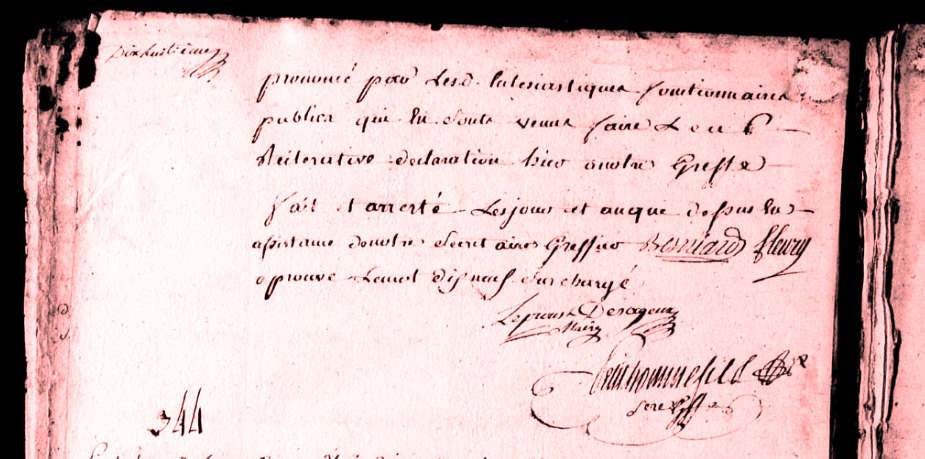 Dixhuitieme
prononcé par Lesd. Eclesiastiques fonctionnaires
publics qui En sonts venus faire Leur
Reiterative declaration hier anotre Greffe
fait et arresté Lesjour et anque dessus En
assistance denotre Secretaire Greffier Besniard fleury
aprouvé Lemot dixneuf surchargé
Leproust Desageux
Maire
secre Gffe
344